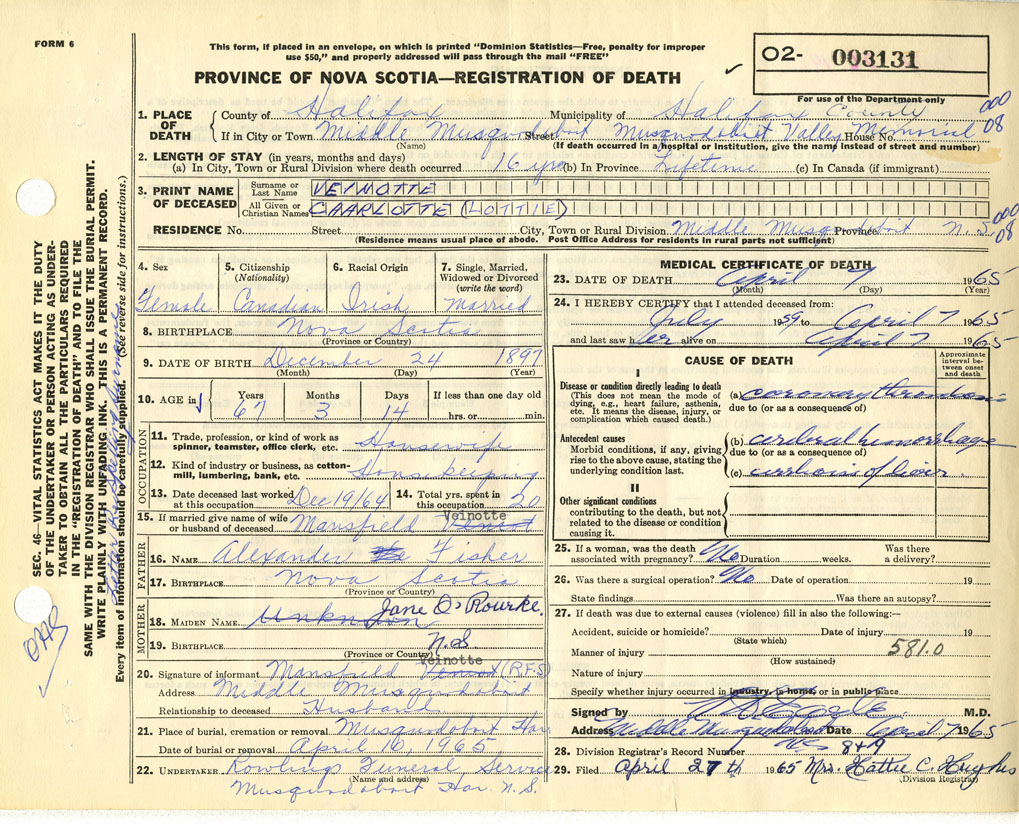 FORM 6
This form, if placed in an envelope, on which is printed "Dominion Statistics—Free, penalty for improper
use $50," and properly addressed will pass through the mail "FREE"
PROVINCE OF NOVA SCOTIA—REGISTRATION OF DEATH
02- 003131
For use of the Department only
000
08
1. PLACE OF DEATH
County of Halifax Municipality of Halifax County
If in City or Town Middle Musquodoboit Street Musquodoboit Valley House No. Memorial
(Name) (If death occurred in a hospital or institution, give the name instead of street and number)
2. LENGTH OF STAY (in years, months and days)
(a) In City, Town or Rural Division where death occurred 16 yrs (b) In Province Lifetime (c) In Canada (if immigrant)
3. PRINT NAME OF DECEASED
Surname or Last Name VEINOTTE
All Given or Christian Names CHARLOTTE (LOTTIE)
000
08
RESIDENCE No. Street City, Town or Rural Division Middle Musquodoboit Province N.S
(Residence means usual place of abode. Post Office Address for residents in rural parts not sufficient)
SEC. 46—VITAL STATISTICS ACT MAKES IT THE DUTY
OF THE UNDERTAKER OR PERSON ACTING AS UNDER-
TAKER TO OBTAIN ALL THE PARTICULARS REQUIRED
IN THE "REGISTRATION OF DEATH" AND TO FILE THE
SAME WITH THE DIVISION REGISTRAR WHO SHALL ISSUE THE BURIAL PERMIT.
WRITE PLAINLY WITH UNFADING INK. THIS IS A PERMANENT RECORD.
Every item of information should be carefully supplied. (See reverse side for instructions.)
4. Sex Female
5. Citizenship (Nationality) Canadian
6. Racial Origin Irish
7. Single, Married, Widowed or Divorced (write the word) Married
8. BIRTHPLACE Nova Scotia
(Province or Country)
9. DATE OF BIRTH December 24 1897
(Month) (Day) (Year)
10. AGE in Years 67 Months 3 Days 14 If less than one day old hrs. or min.
OCCUPATION
11. Trade, profession, or kind of work as spinner, teamster, office clerk, etc. Housewife
12. Kind of industry or business, as cotton-mill, lumbering, bank, etc. Housekeeping
13. Date deceased last worked at this occupation Dec 19/64
14. Total yrs. spent in this occupation 20
15. If married give name of wife or husband of deceased Mansfield Veinotte
FATHER
16. NAME Alexander Fisher
17. BIRTHPLACE Nova Scotia
(Province or Country)
MOTHER
18. MAIDEN NAME Unknown Jane O'Rourke.
19. BIRTHPLACE N.S
(Province or Country)
20. Signature of informant Mansfield Veinotte (R.F.S)
Address Middle Musquodoboit
Relationship to deceased Husband
21. Place of burial, cremation or removal Musquodoboit Har
Date of burial or removal April 10, 1965
22. UNDERTAKER Rowlings Funeral Service
(Name and address)
Musquodoboit Har. N.S.
MEDICAL CERTIFICATE OF DEATH
23. DATE OF DEATH April 7 1965
(Month) (Day) (Year)
24. I HEREBY CERTIFY that I attended deceased from:
July 1959 to April 7 1965
and last saw her alive on April 7 1965
CAUSE OF DEATH
Approximate interval between onset and death
I
Disease or condition directly leading to death
(This does not mean the mode of dying, e.g., heart failure, asthenia, etc. It means the disease, injury, or complication which caused death.)
(a) coronary thrombosis
due to (or as a consequence of)
Antecedent causes
Morbid conditions, if any, giving rise to the above cause, stating the underlying condition last.
(b) cerebral hemorrhage
due to (or as a consequence of)
(c) cirrhosis of liver
II
Other significant conditions
contributing to the death, but not related to the disease or condition causing it.
25. If a woman, was the death associated with pregnancy? No Duration weeks. Was there a delivery?
26. Was there a surgical operation? No Date of operation 19
State findings Was there an autopsy?
27. If death was due to external causes (violence) fill in also the following:—
Accident, suicide or homicide? Date of injury 19
(State which)
Manner of injury 581.0
(How sustained)
Nature of injury
Specify whether injury occurred in industry, in home, or in public place
Signed by M.D.
Address Middle Musquodoboit Date April 7 1965
28. Division Registrar's Record Number 849
29. Filed April 27th 1965 Mrs. Hattie C. Hughes
(Division Registrar)